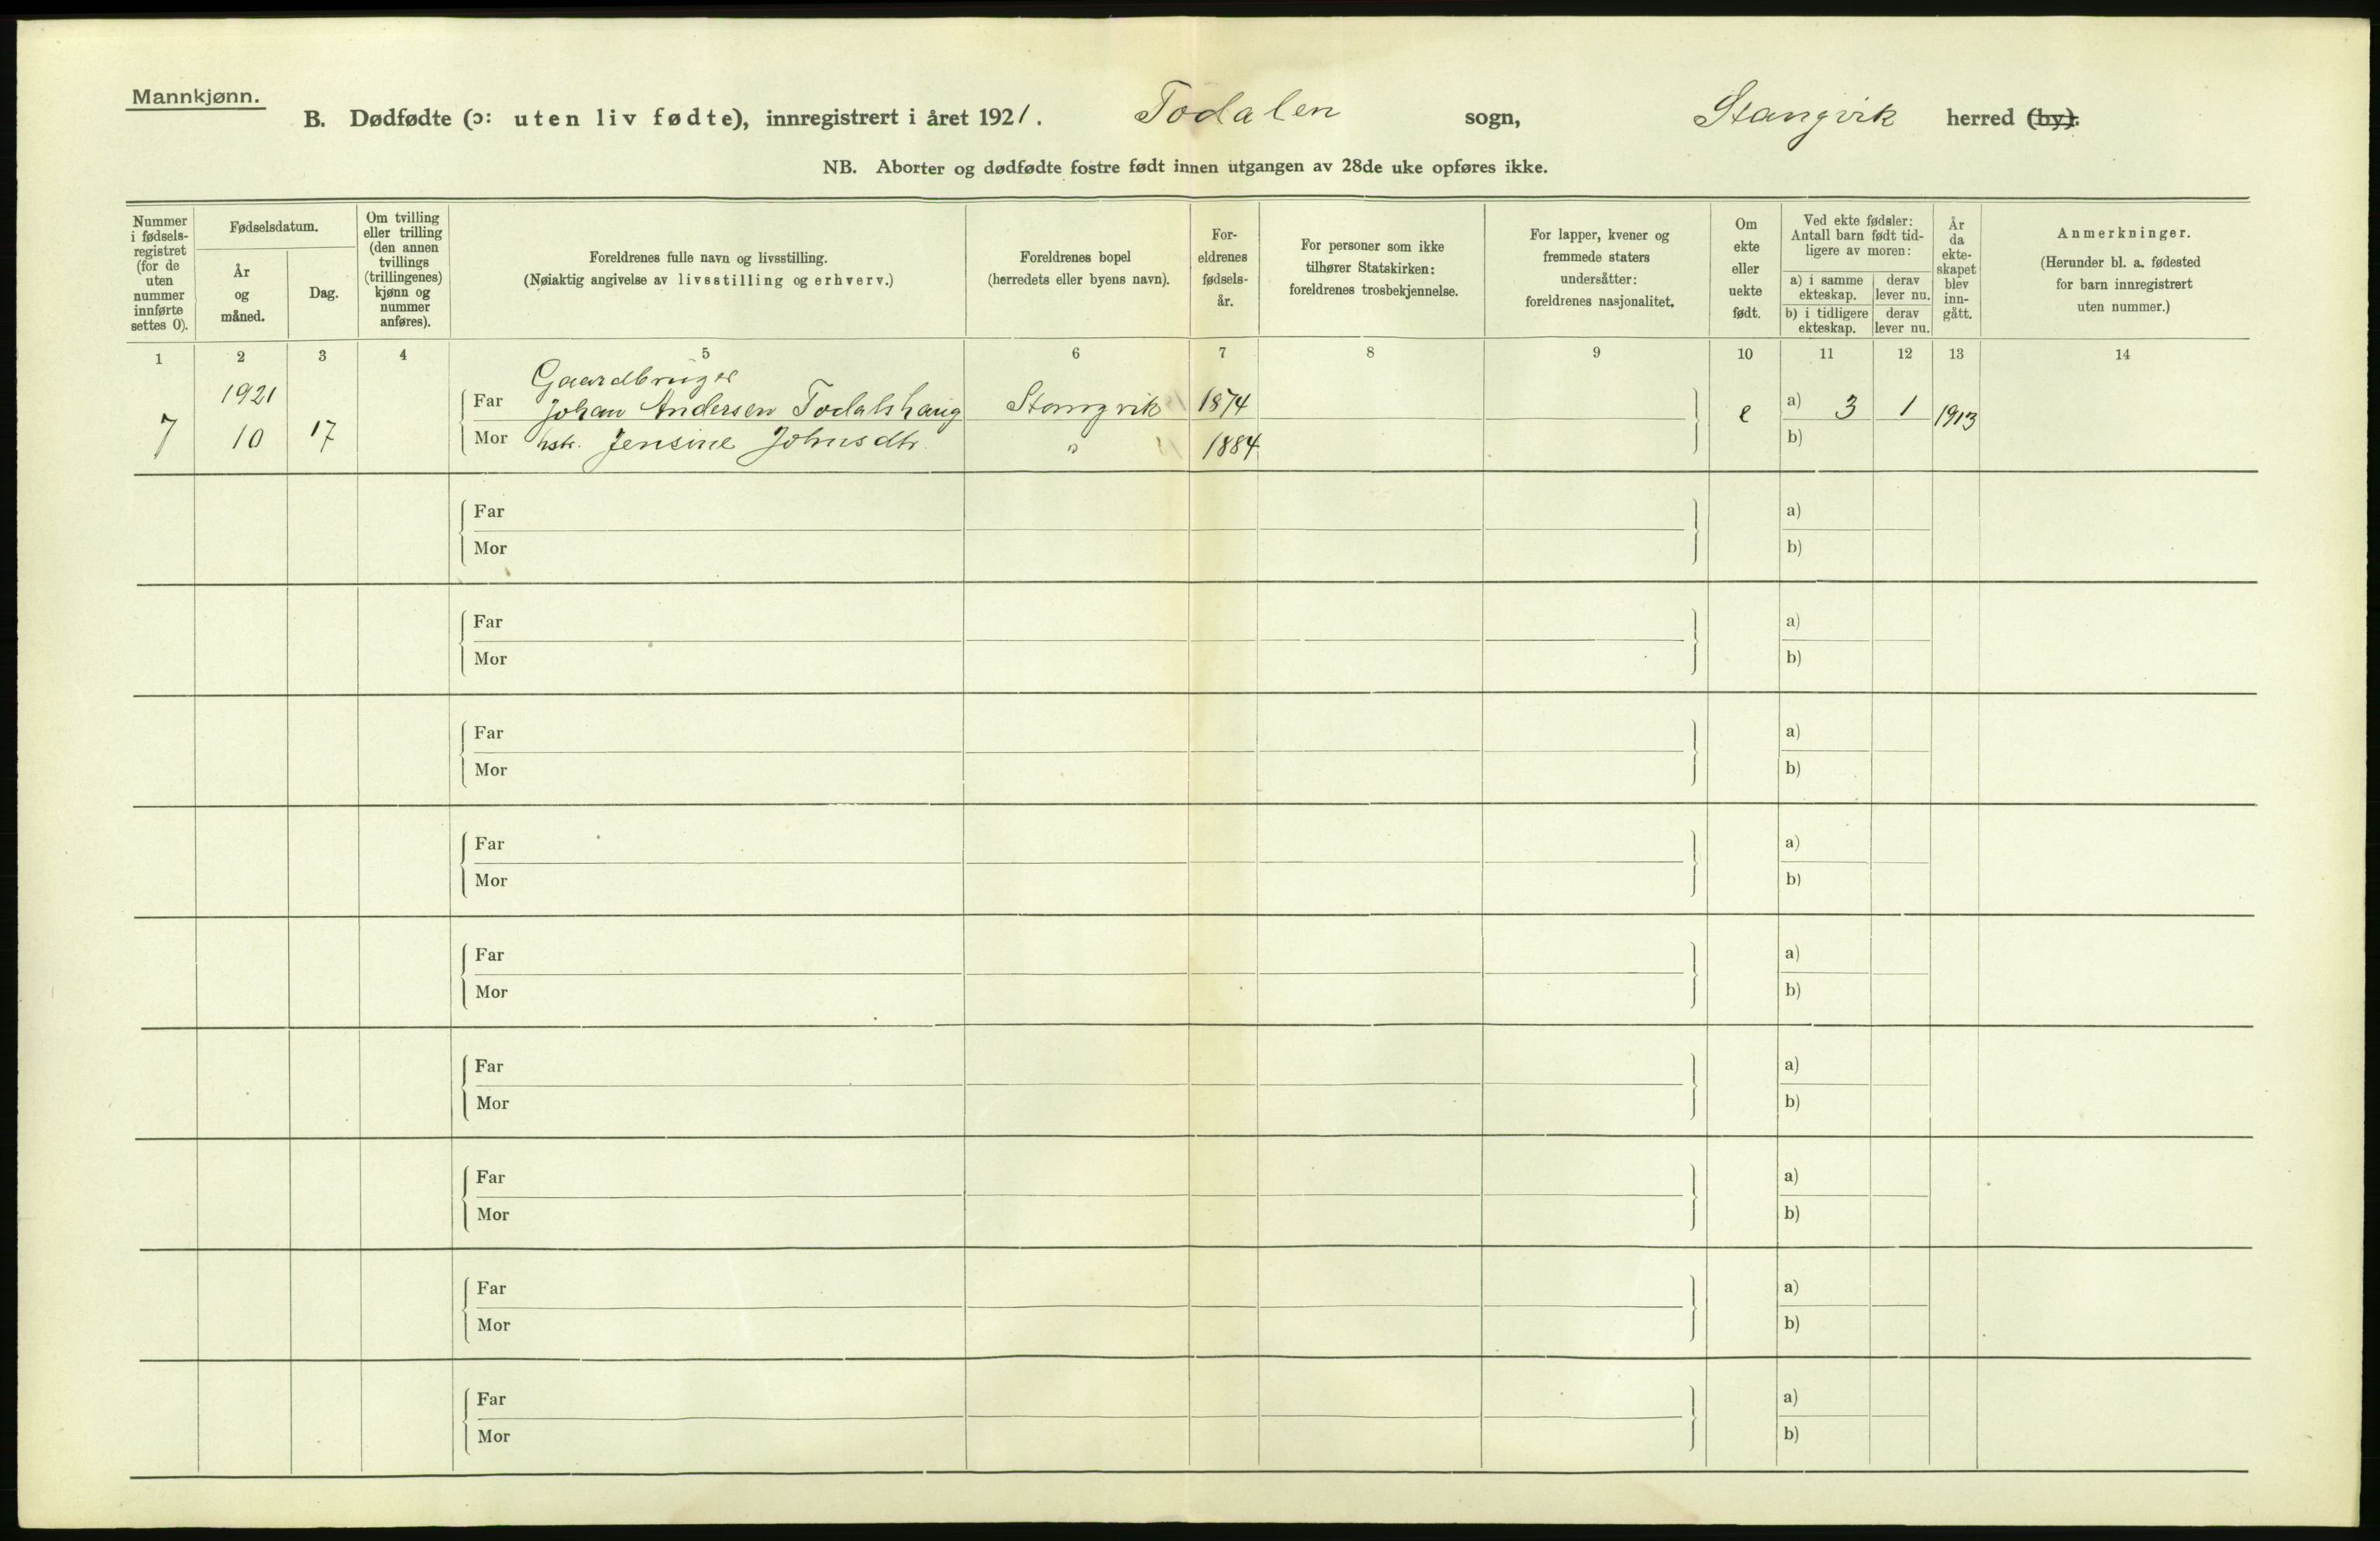 Mannkjønn.
B. Dødfødte (ɔ: uten liv fødte), innregistrert i året 1921. Todalen sogn, Stangvik herred (by).
NB. Aborter og dødfødte fostre født innen utgangen av 28de uke opføres ikke.
Nummer i fødsels- registret (for de uten nummer innførte settes 0).
Fødselsdatum.
År og måned.
Dag.
Om tvilling eller trilling (den annen tvillings (trillingenes) kjønn og nummer anføres).
Foreldrenes fulle navn og livsstilling.
(Nøiaktig angivelse av livsstilling og erhverv.)
Foreldrenes bopel
(herredets eller byens navn).
For- eldrenes fødsels- år.
For personer som ikke
tilhører Statskirken:
foreldrenes trosbekjennelse.
For lapper, kvener og
fremmede staters
undersåtter:
foreldrenes nasjonalitet.
Om ekte eller uekte født.
Ved ekte fødsler:
Antall barn født tid-
ligere av moren:
a) i samme ekteskap.
derav lever nu.
b) i tidligere ekteskap.
derav lever nu.
År da ekte- skapet blev inn- gått.
Anmerkninger.
(Herunder bl. a. fødested
for barn innregistrert
uten nummer.)
1 2 3 4 5 6 7 8 9 10 11 12 13 14
Gaardbruger
1921 Far Johan Andersen Todalshaug Stangvik 1874 e a) 3 1 1913
7 10 17 Mor hstr. Jensine Johnsdtr. " 1884 b)
Far a)
Mor b)
Far a)
Mor b)
Far a)
Mor b)
Far a)
Mor b)
Far a)
Mor b)
Far a)
Mor b)
Far a)
Mor b)
Far a)
Mor b)
Far a)
Mor b)